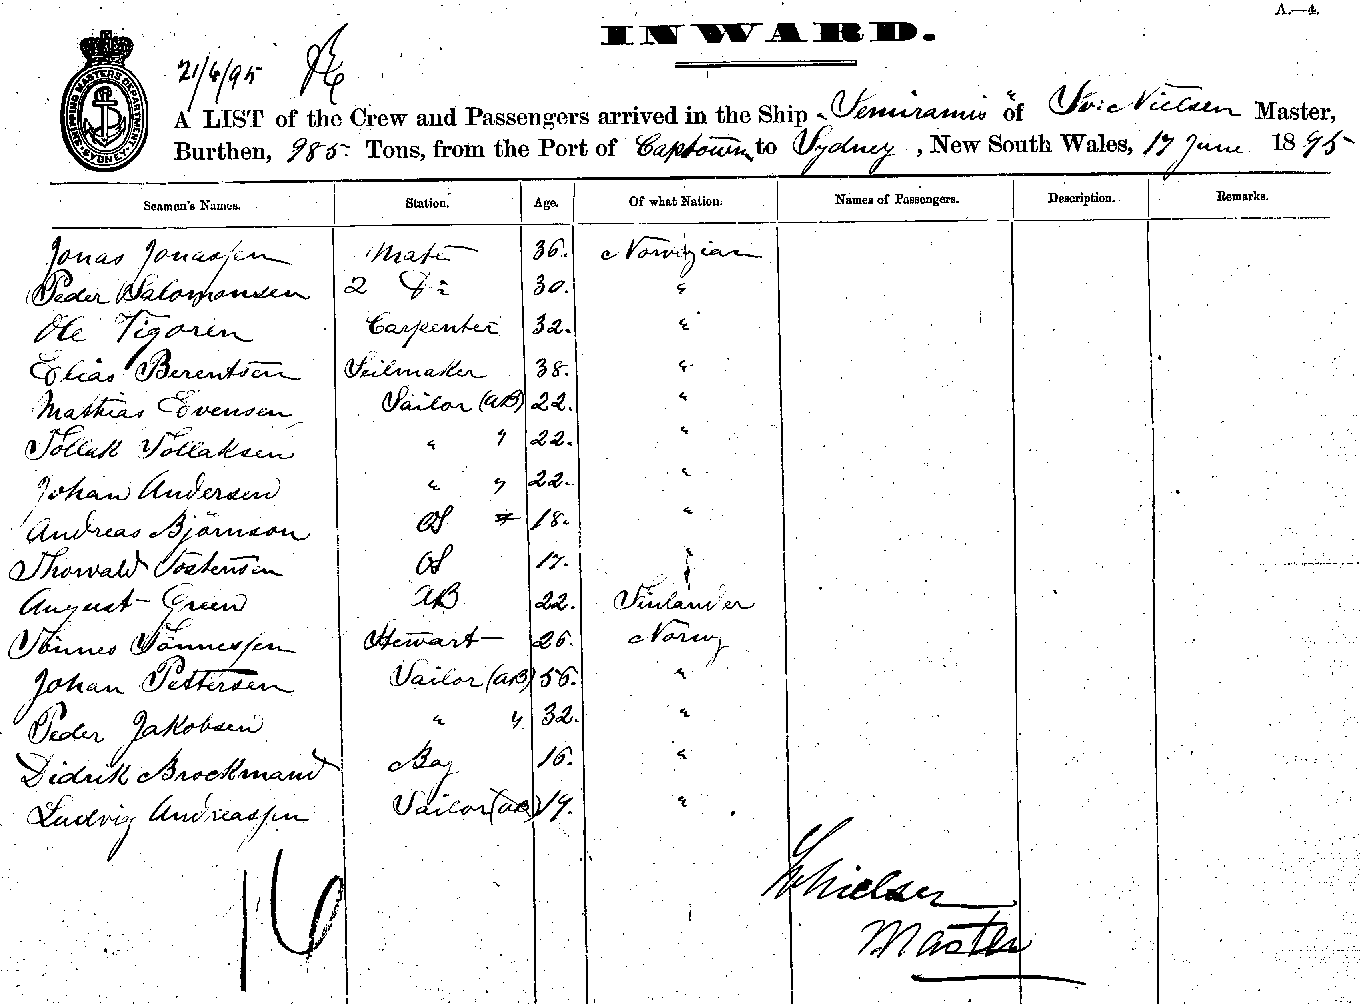 A.—4.
INWARD.
SHIPPING MASTERS DEPARTMENT SYDNEY
21/6/95
A LIST of the Crew and Passengers arrived in the Ship "Semiramis" of Nielsen Master,
Burthen, 985 Tons, from the Port of Captown to Sydney, New South Wales, 17 June 1895
Seamen's Names. Station. Age. Of what Nation. Names of Passengers. Description. Remarks.
Jonas Jonassen Mate 36. Norwegian
Peder Salomonsen 2 Do 30. "
Ole Tigoren Carpenter 32. "
Elias Berentsen Seilmaker 38. "
Mathias Evensen Sailor (AB) 22. "
Tollak Tollaksen " " 22. "
Johan Andersen " " 22. "
Andreas Björnson OS 18. "
Thorvald Tostensen OS 17. "
August Green AB 22. Finlander
Tönnes Tönnessen Stewart 26. Norwg
Johan Pettersen Sailor (AB) 56. "
Peder Jakobsen " " 32. "
Didrik Brockmand Boy 16. "
Ludvig Andreassen Sailor (AB) 19. "
16
Nielsen
Master